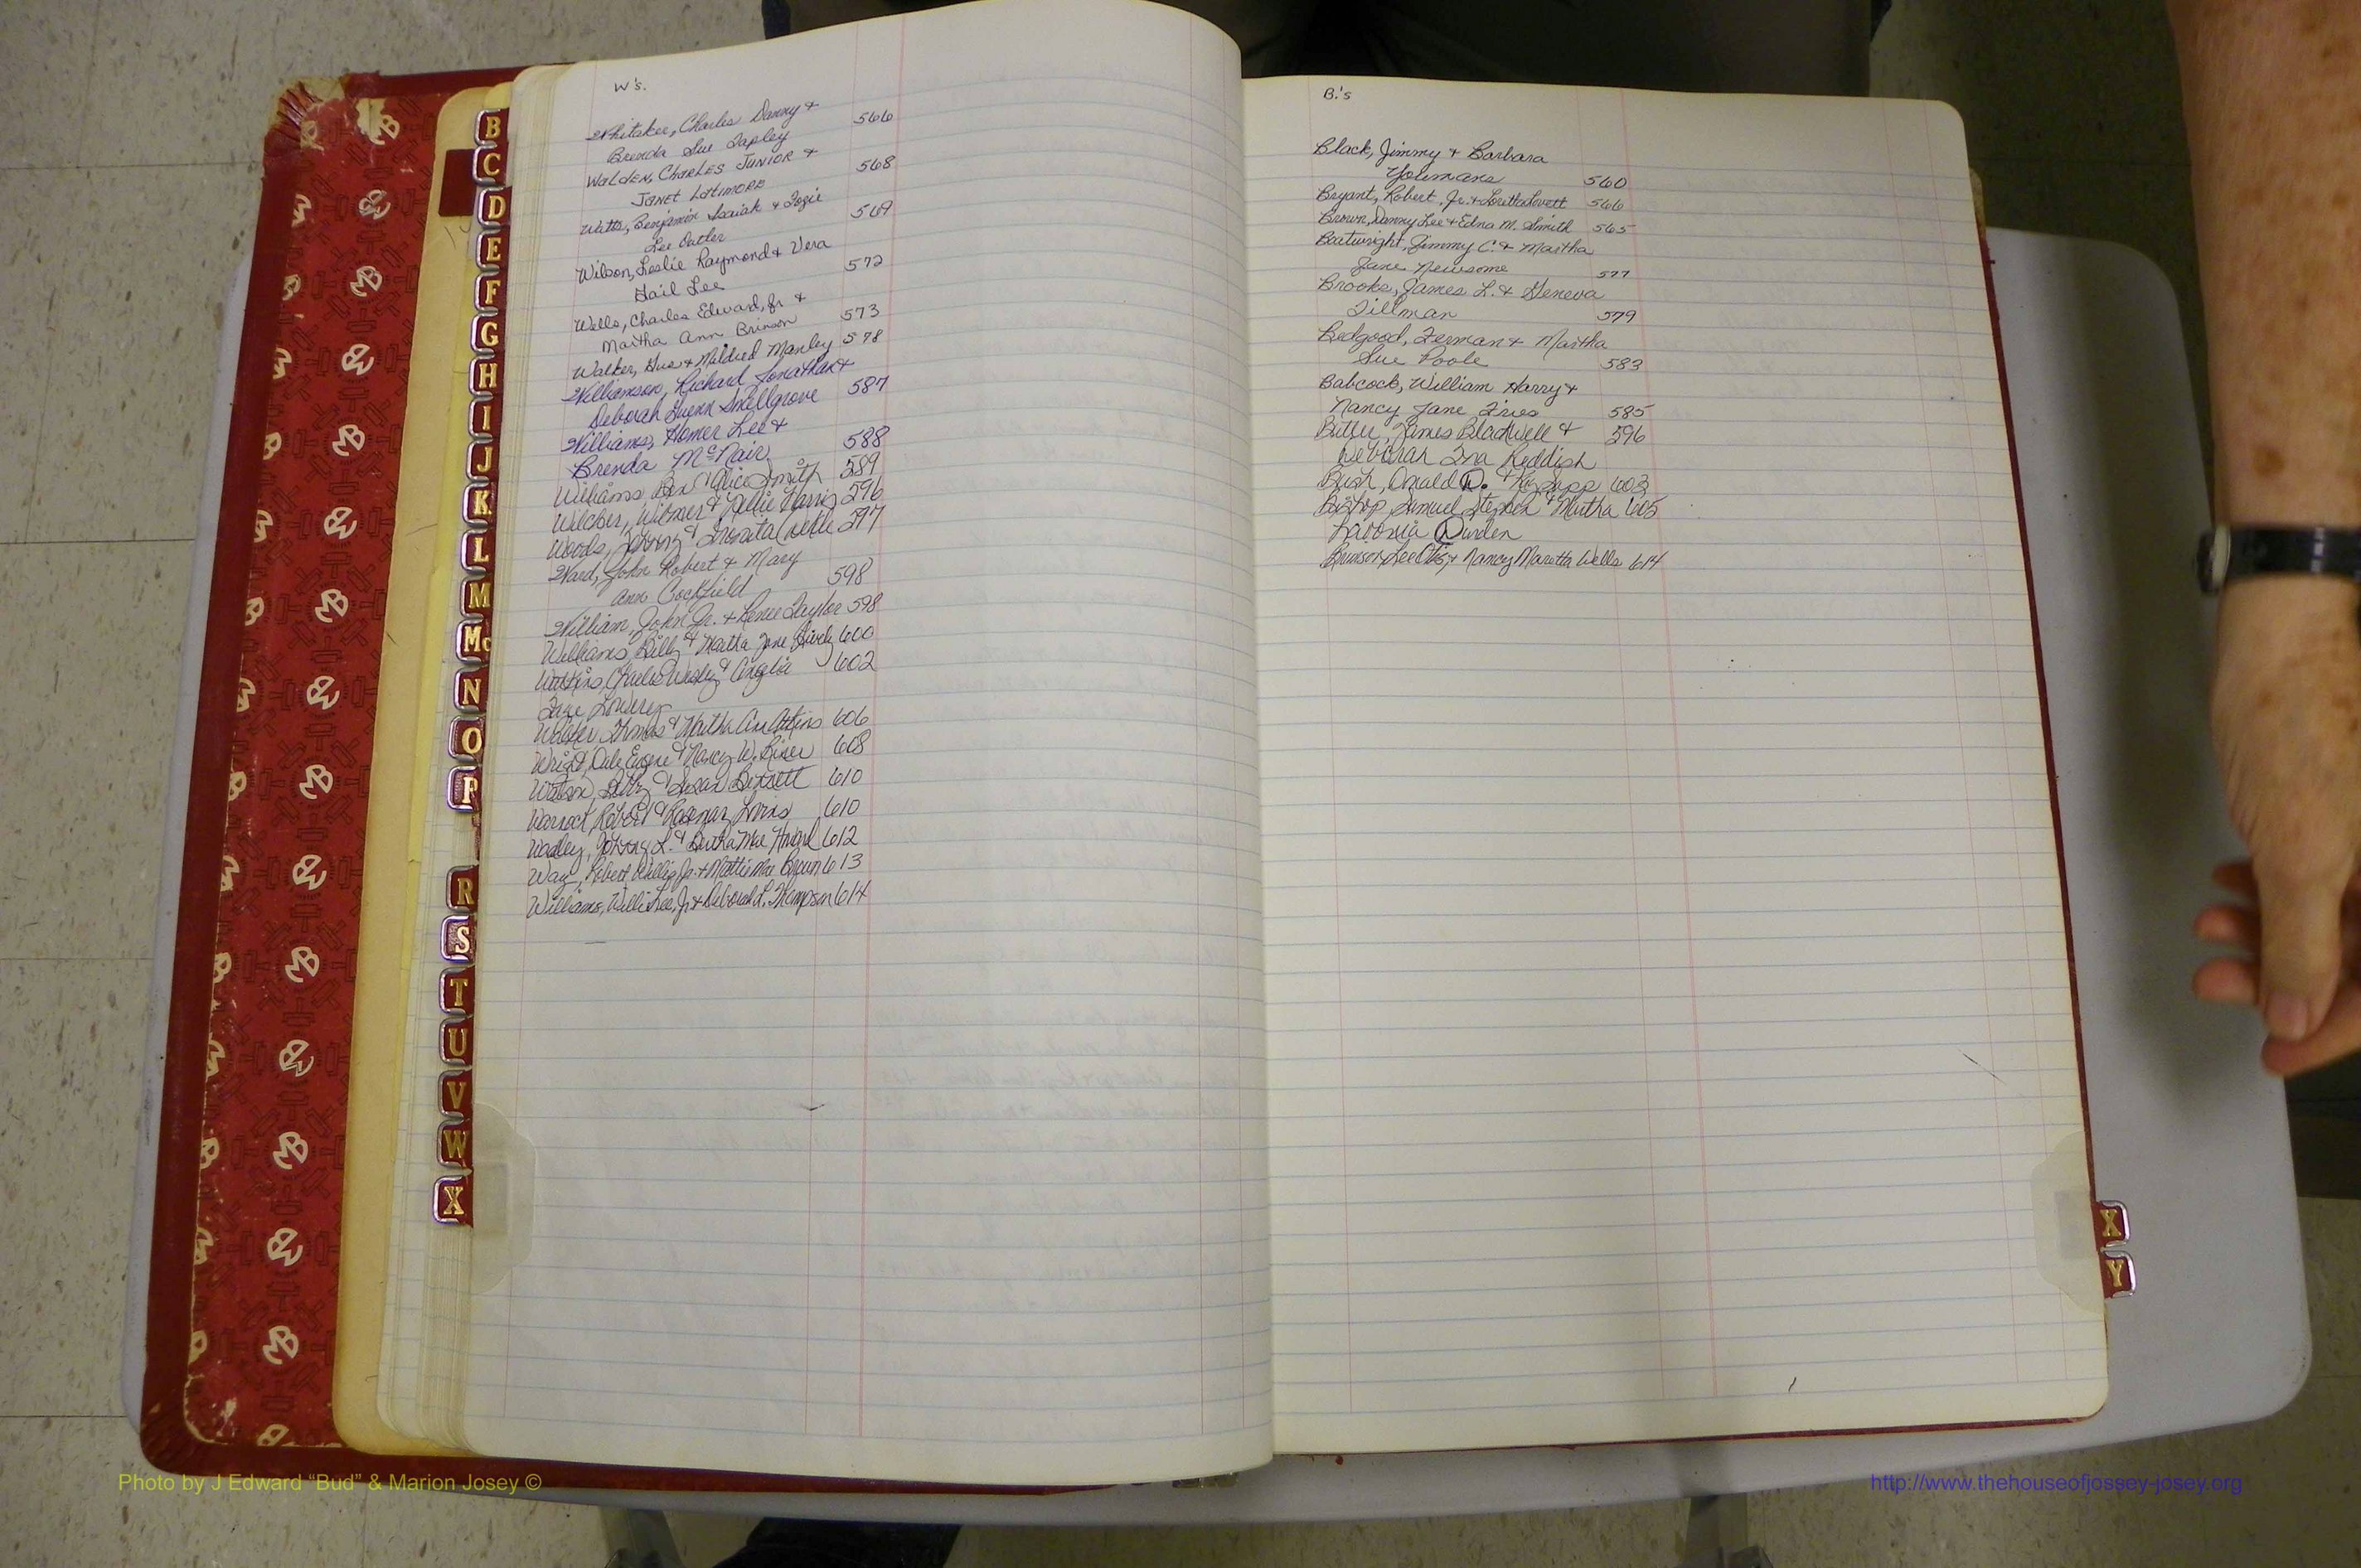 W's.
Whitaker, Charles Danny &
Brenda Sue Tapley 566
WALDEN, CHARLES JUNIOR &
JANET LATIMORE 568
Watts, Benjamin Isaiah & Rozie
Lee Cutler 569
Wilson, Leslie Raymond & Vera
Gail Lee 572
Wells, Charles Edward, Jr &
Martha Ann Brinson 573
Walker, Gus & Mildred Manley 578
Williamson, Richard Jonathan &
Deborah Snellgrove 587
Williams, Homer Lee &
Brenda McNair 588
Williams, Ben & Alice Smith 589
Wilcher, Wilmer & Nellie Harris 596
Woods, Johnny & 597
Ward, John Robert & Mary
Ann Cockfield 598
William, John Jr. & Renee Taylor 598
Williams, Billy & Martha Jane 600
Watkins, Charles Wesley & Angelia 602
Faye Lowery
Walker Thomas & Martha Ann Adkins 606
Wright, Dale Eugene & Nancy W. Riner 608
Watson, & Susan Bennett 610
Warnock, Robert & Rosemary 610
Wadley, Johnny L. & Bertha Mae Howard 612
Way, Robert Willis, Jr. & Mattie Mae Brown 613
Williams, Willie Lee, Jr & Deborah L. Thompson 614
B.'s
Black, Jimmy & Barbara
Youmans 560
Bryant, Robert, Jr. & Loretta Lovett 566
Brown, Danny Lee & Edna M. Smith 565
Boatwright, Jimmy C. & Martha
Jane Newsome 577
Brooks, James L. & Geneva
Tillman 579
Bedgood, Ferman & Martha
Sue Poole 583
Babcock, William Harry &
Nancy Jane Fries 585
James Blackwell & 596
Deborah Ina Reddish
Bush, Donald D. & Kie Sapp 603
Bishop, Samuel Stephen & Martha 605
Lavonia Durden
Brinson, Lee Otis, & Nancy Maretta Wells 614
B
C
D
E
F
G
H
I
J
K
L
M
Mc
N
O
P
R
S
T
U
V
W
X
X
Y
Photo by J Edward “Bud” & Marion Josey ©
http://www.thehouseofjossey-josey.org